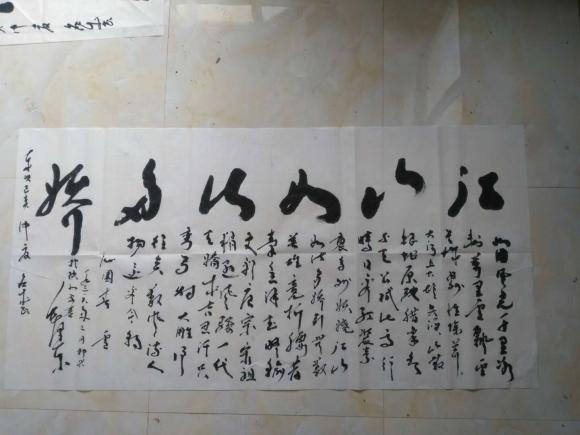 江山如此多娇
北国风光千里冰
封万里雪飘望
大河上下顿失滔
银蛇原驰蜡象欲
与天公试比高须
晴日看红装素
裹分外妖娆江山
如此多娇引无数
英雄竞折腰惜
秦皇汉武略输
文采唐宗宋祖
稍逊风骚一代
天骄成吉思汗只
弯弓射大雕
往矣数风流人
物还看今朝
沁园春 雪
毛泽东
己亥仲夏